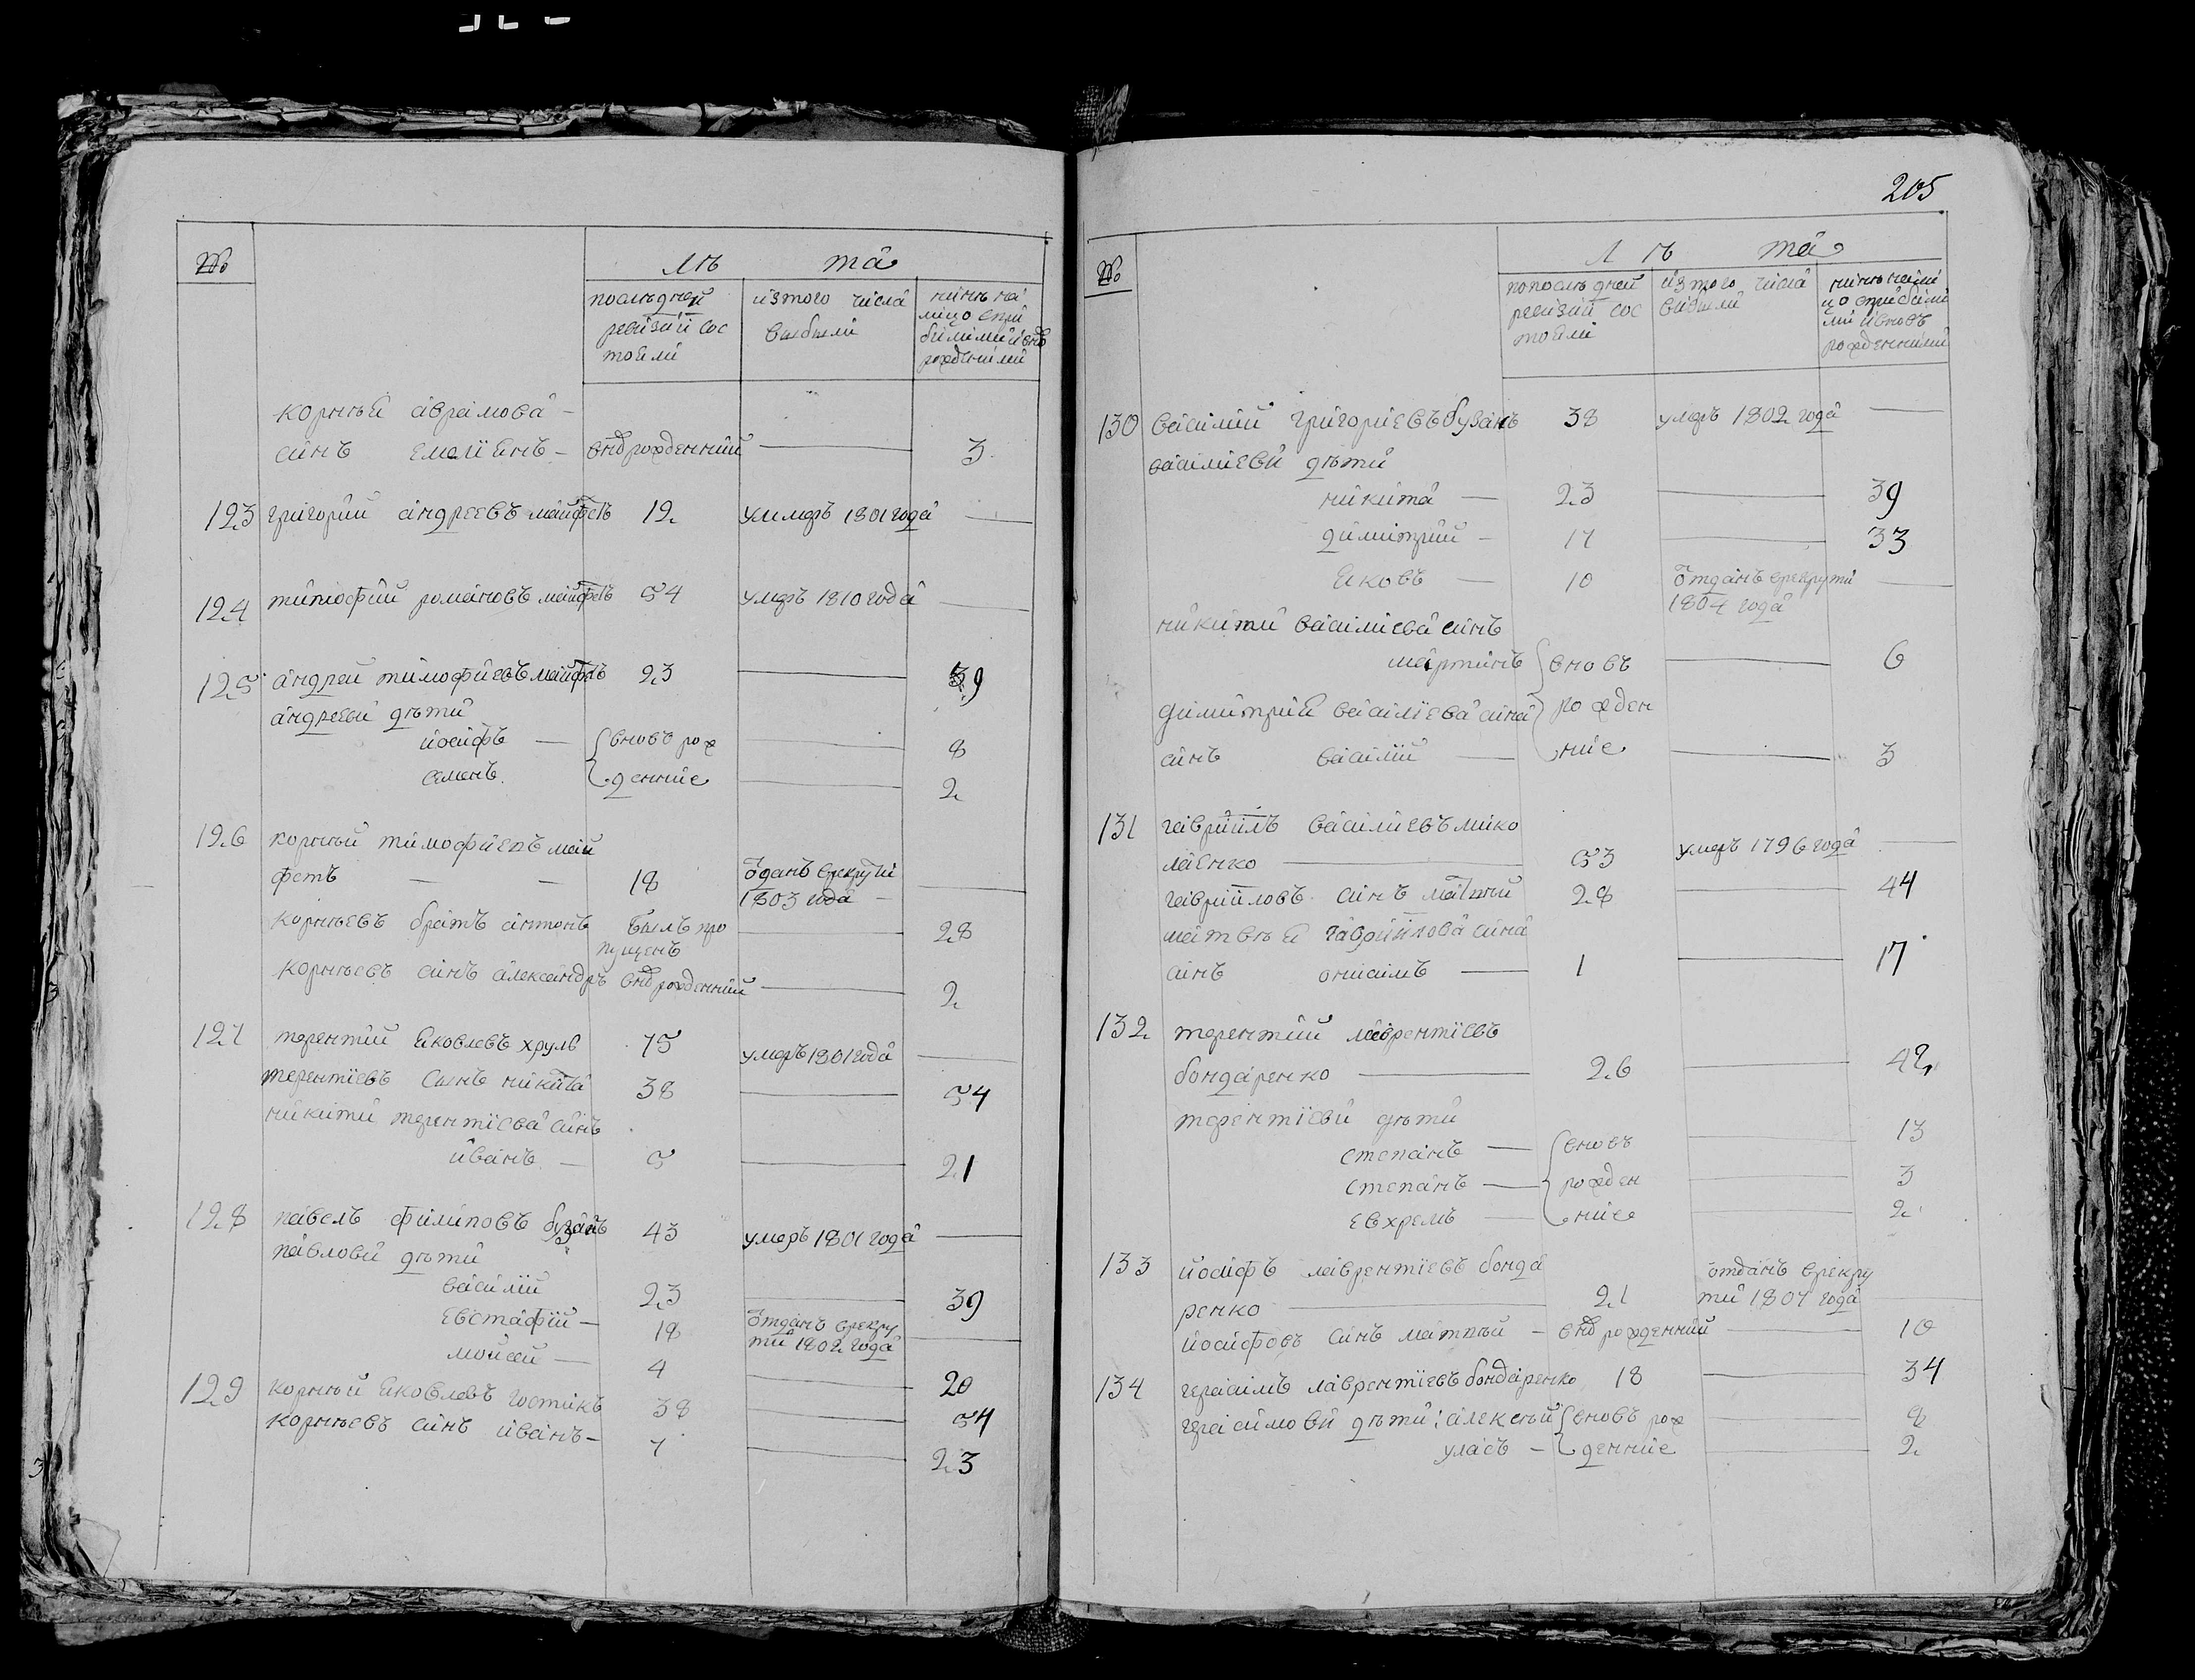 №
Лѣ та
послѣдней ревизии состояли
изтого числа выбыли
нинѣ налицо сприбилими ивнов рожденими
корнѣя аврамова -
синъ емелиянъ - внов рожденний — 3
123 григорий андреевъ майфетъ 12 умиръ 1801 года —
124 тимофий романовъ майфетъ 54 умеръ 1810 года —
125 андрей тимофиевъ майфетъ 23 — 39
андреевы дѣти
иосифъ — вновъ рож — 8
семенъ денние — 2
126 корнѣй тимофиевъ май
фетъ — — 18 отданъ врекрути —
1803 года -
корнѣевъ братъ антонъ былъ про — 28
пущенъ
корнѣевъ синъ александръ внов рожденний — 2
127 терентий яковлевъ хруль 75 умеръ 1801 года —
терентиевъ сынъ никита 38 — 54
никити терентиева синъ
иванъ — 5 — 21
128 павелъ филиповъ бузанъ 43 умеръ 1801 года —
павлови дѣти
василий 23 — 39
евстафий — 18 отданъ врекру —
ти 1802 года
мойсей — 4 — 20
129 корнѣй яковлевъ гостикъ 38 — 54
корнѣевъ синъ иванъ - 7 — 23
205
№
Лѣ та
попослѣдней ревизии состояли
изтого числа вибыли
нинѣ налицо сприбилими ивновъ рожденними
130 василий григориевъ бузанъ 38 умеръ 1802 года —
василиеви дѣти
никита — 23 — 39
димитрий — 17 — 33
яковъ — 10 отданъ врекрути —
1804 года
никити василиева синъ
мартинъ вновъ — 6
димитрия василиева сина рожден
синъ василий — ние — 3
131 гавриилъ василиевъ мико
лаенко — 53 умеръ 1796 года —
гаврииловъ синъ матвѣй 28 — 44
матвѣя гавриилова сина
синъ онисимъ — 1 — 17
132 терентий лаврентиевъ
бондаренко — 26 — 42
терентиеви дѣти
степанъ — вновъ — 13
степанъ — рожден — 3
евхремъ — ние — 2
133 иосифъ лаврентиевъ бонда
ренко — 21 отданъ врекру
ти 1807 года —
иосифовъ синъ матвѣй — внов рожденний — 10
134 герасимъ лаврентиевъ бондаренко 18 — 34
герасимови дѣти: алексѣй вновъ рож 8
уласъ — денние — 2